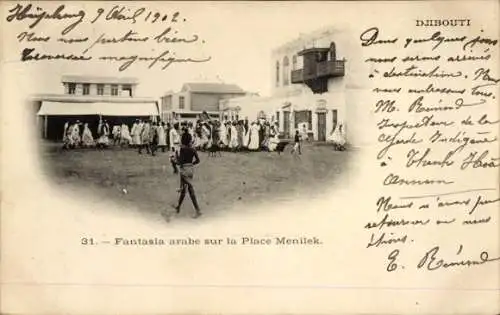 Haïphong 9 Avril 1902.
Nous nous portons bien
Traversée magnifique
DJIBOUTI
Dans quelques jours
nous serons arrivés
à destination. Adressez
nous
M. Rémond
Inspecteur de la
Garde Indigène
à Thanh Hoà
Annam
Nous n'avons pu
retourner où nous
étions.
E. Rémond
31. — Fantasia arabe sur la Place Menilek.